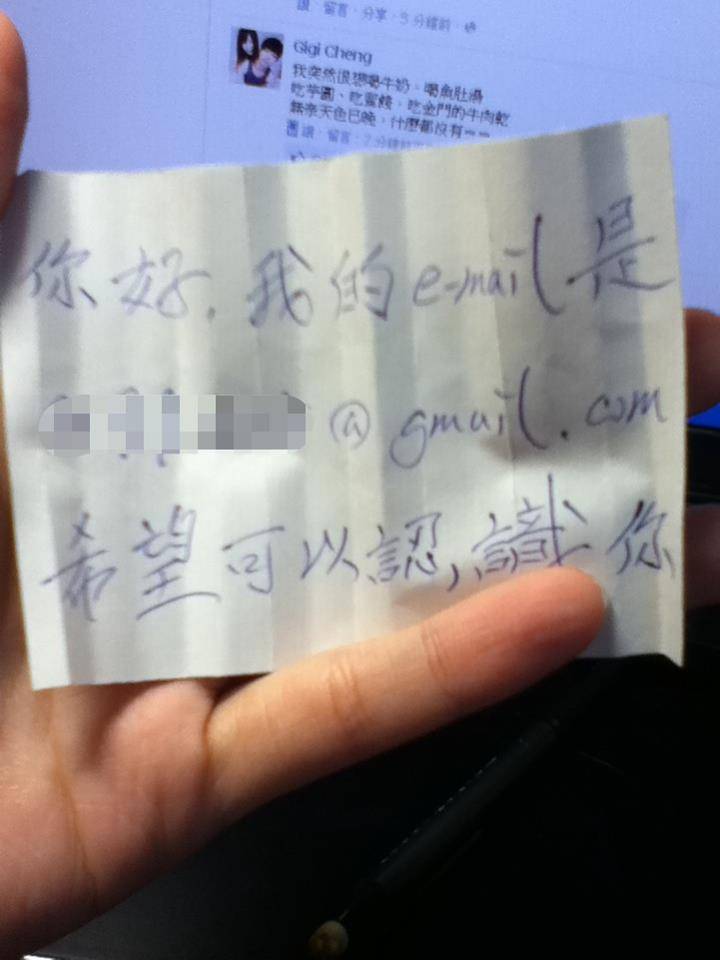 讚 · 留言 · 分享 · 5 分鐘前 ·
Gigi Cheng
我突然很想喝牛奶，喝魚肚湯
吃芋圓、吃蛋餃，吃金門的牛肉乾
無奈天色已晚，什麼都沒有
讚 · 留言 · 7 分鐘前
你好，我的 e-mail 是
@gmail.com
希望可以認識你